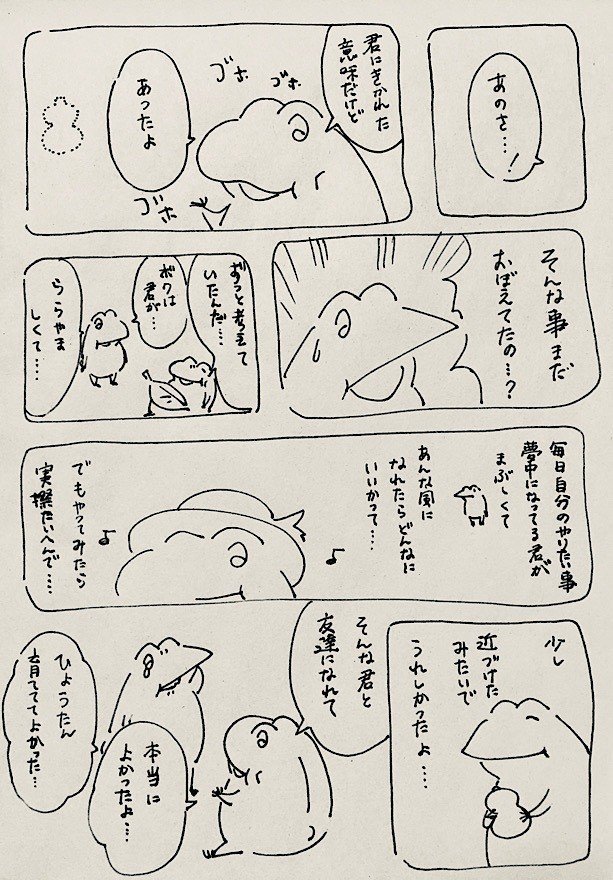 あのさ……！
君にきかれた
意味だけど
ゴホ
ゴホ
あったよ
ゴホ
そんな事まだ
おぼえてたの…？
ずっと考えて
いたんだ……
ボクは
君が…
うらやま
しくて……
毎日自分のやりたい事
夢中になってる君が
まぶしくて
あんな風に
なれたらどんなに
いいかって…
でもやってみたら
実際たいへんで……
少し
近づけた
みたいで
うれしかったよ…
そんな君と
友達になれて
本当に
よかったよ…
ひょうたん
育ててよかった…